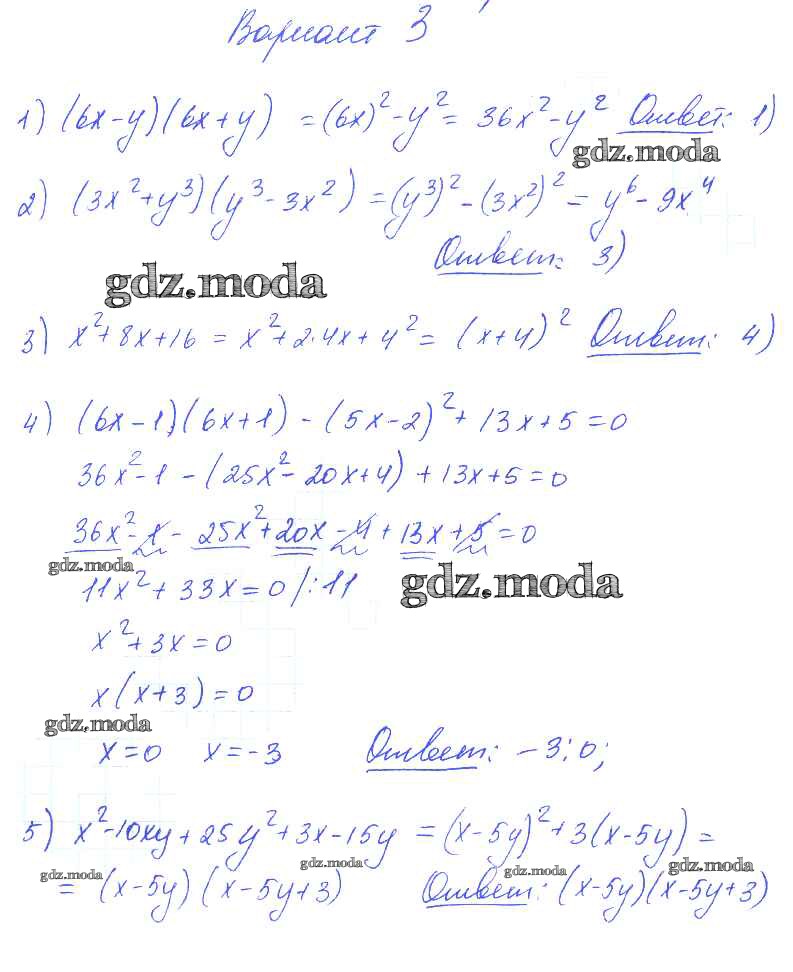 Вариант 3
1) (6x-y)(6x+y) = (6x)²-y² = 36x²-y² Ответ: 1)
gdz.moda
2) (3x²+y³)(y³-3x²) = (y³)²-(3x²)² = y⁶-9x⁴
Ответ: 3)
gdz.moda
3) x²+8x+16 = x²+2·4x+4² = (x+4)² Ответ: 4)
4) (6x-1)(6x+1) - (5x-2)² + 13x+5 = 0
36x²-1 - (25x²-20x+4) + 13x+5 = 0
36x²-1 - 25x²+20x-4 + 13x+5 = 0
gdz.moda
11x² + 33x = 0 /:11
gdz.moda
x²+3x = 0
x(x+3) = 0
gdz.moda
x=0 x=-3 Ответ: -3; 0;
5) x²-10xy+25y²+3x-15y = (x-5y)²+3(x-5y) =
gdz.moda gdz.moda gdz.moda gdz.moda
= (x-5y)(x-5y+3) Ответ: (x-5y)(x-5y+3)